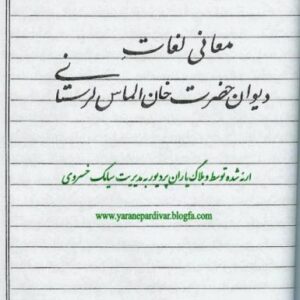 معانی لغاتِ
دیوان حضرت خان الماس لرستانی
ارئه شده توسط وبلاگ یاران پردیور به مدیریت سیامک خسروی
www.yaranepardivar.blogfa.com